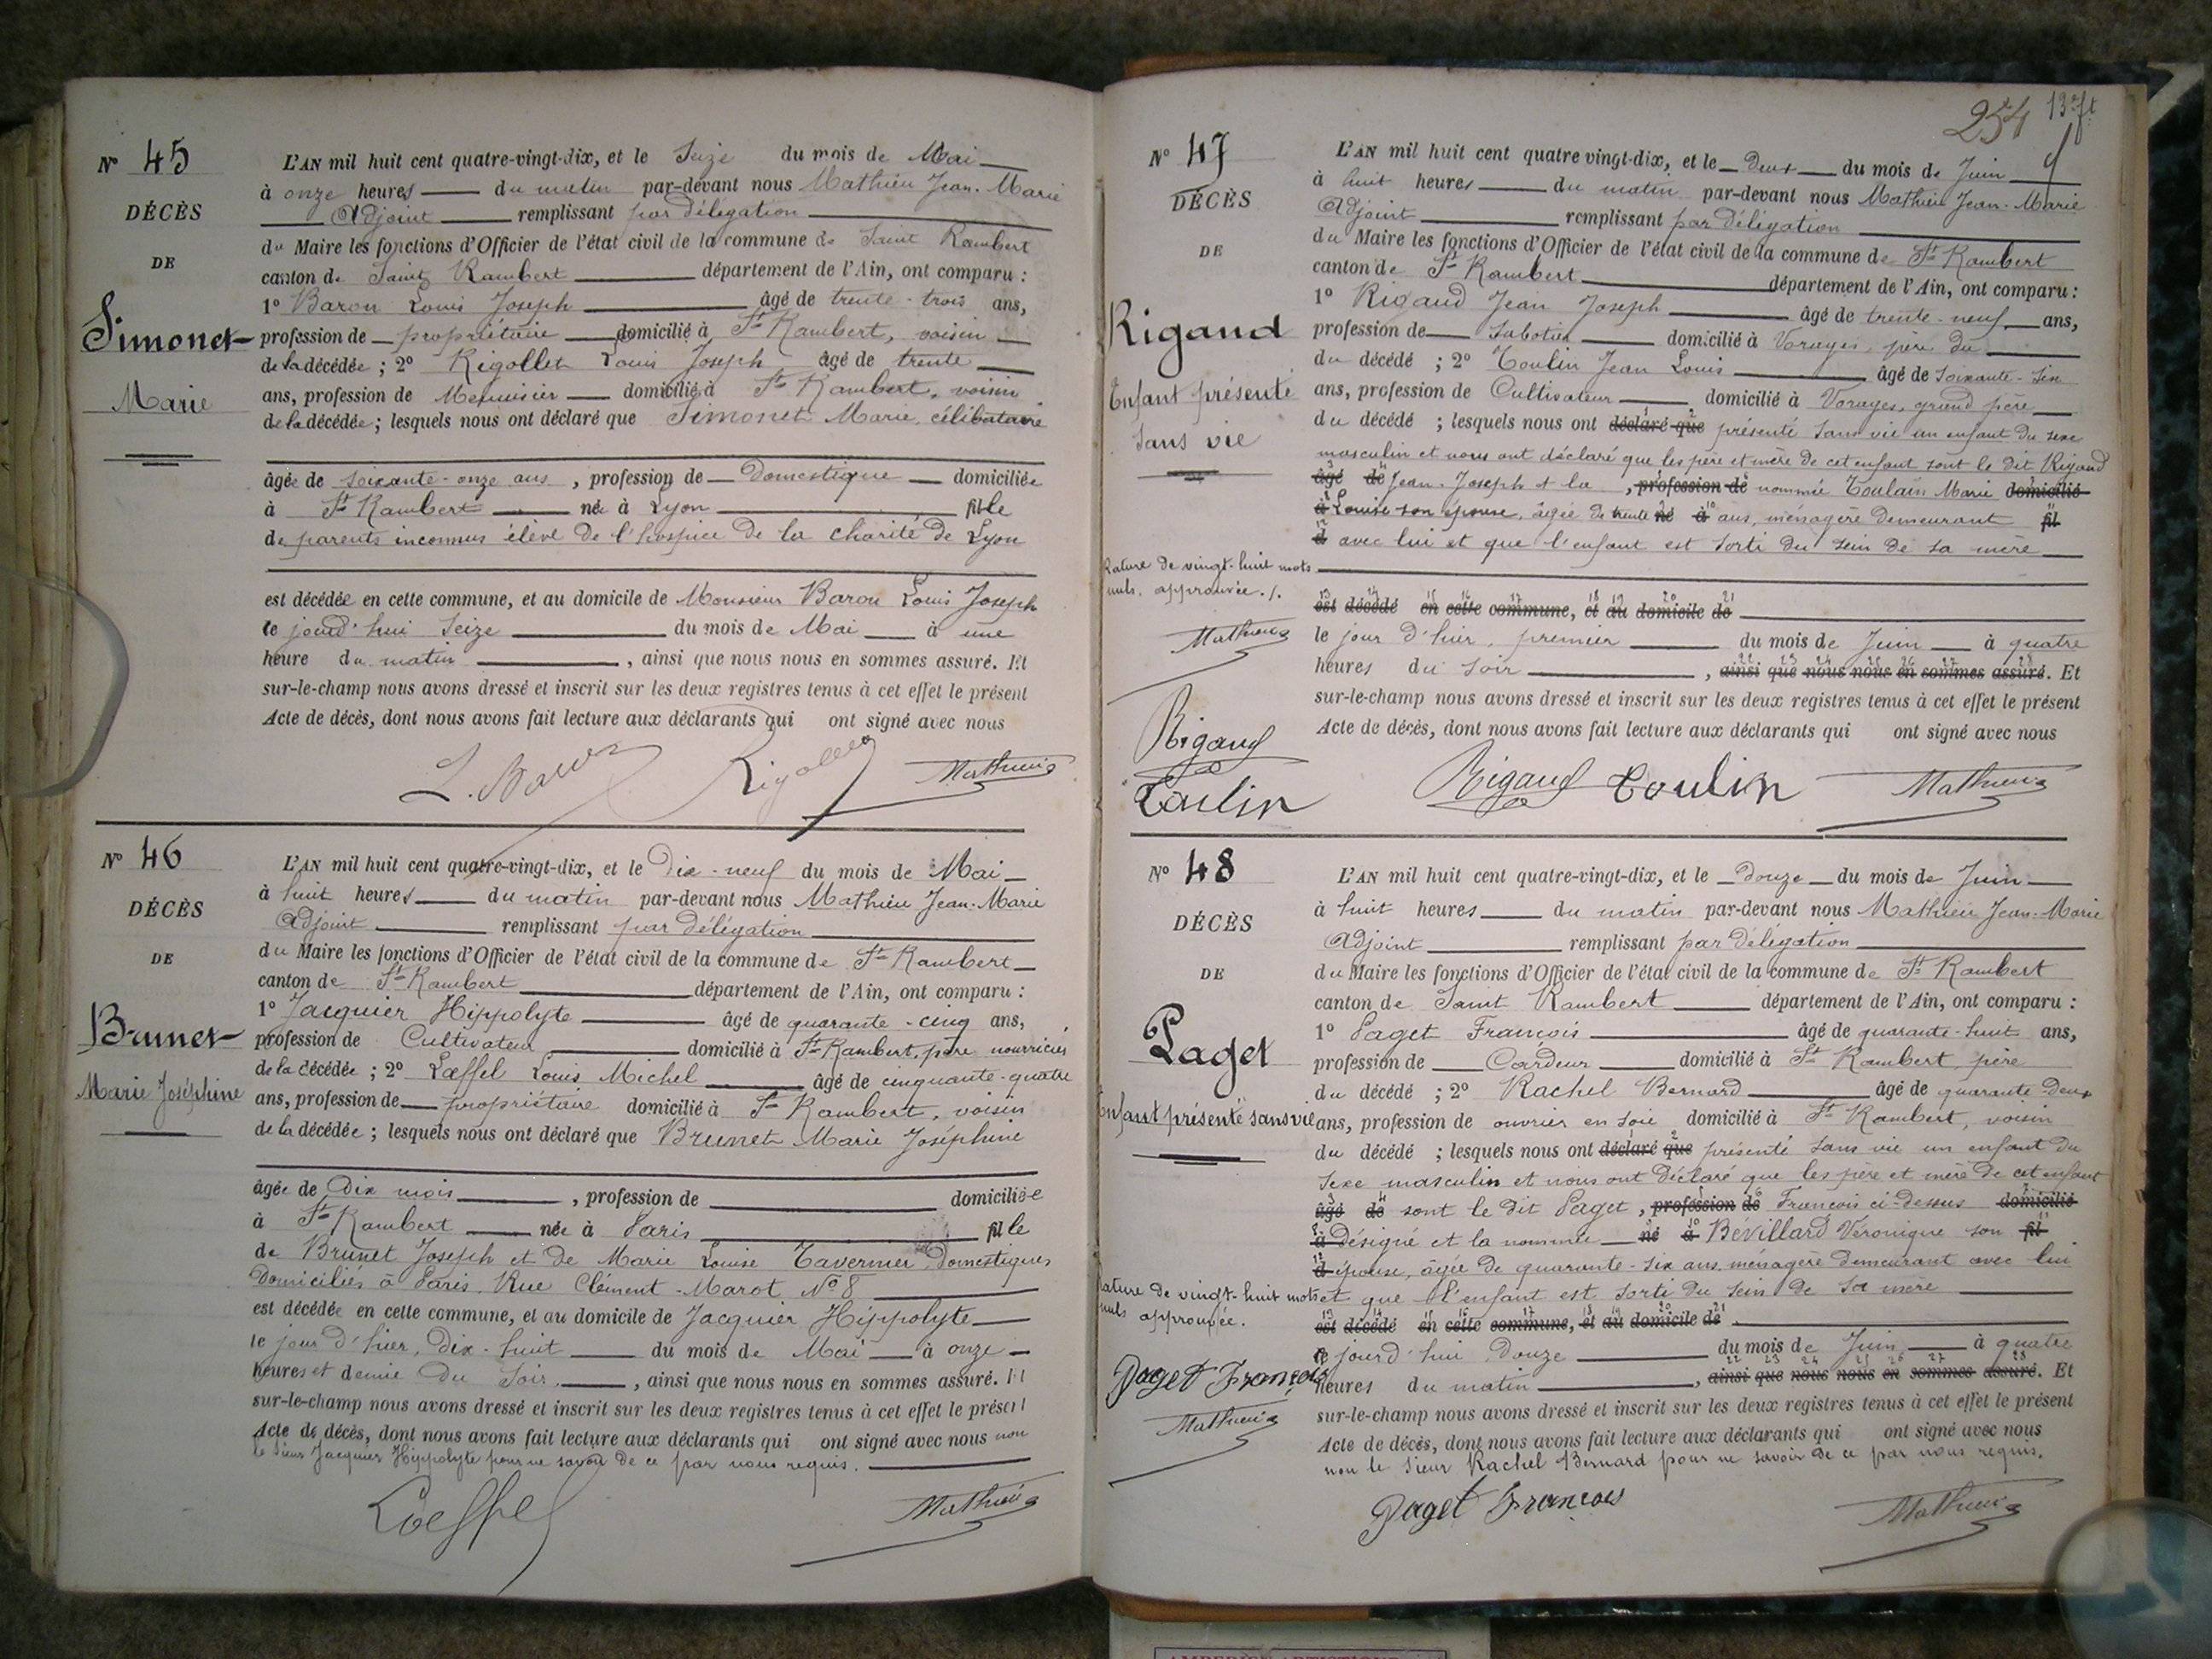 N° 45
DÉCÈS
DE
Simonet
Marie
L'AN mil huit cent quatre-vingt-dix, et le Seize du mois de Mai
à onze heures du matin par-devant nous Mathieu Jean-Marie
Adjoint remplissant par délégation
du Maire les fonctions d'Officier de l'état civil de la commune de Saint Rambert
canton de Saint Rambert département de l'Ain, ont comparu :
1° Baron Louis Joseph âgé de trente-trois ans,
profession de propriétaire domicilié à St Rambert, voisin
de la décédée ; 2° Rigollet Louis Joseph âgé de trente
ans, profession de Menuisier domicilié à St Rambert, voisin
de la décédée ; lesquels nous ont déclaré que Simonet Marie, célibataire
âgée de soixante-onze ans, profession de Domestique domiciliée
à St Rambert née à Lyon fille
de parents inconnus élève de l'hospice de la charité de Lyon
est décédée en cette commune, et au domicile de Monsieur Baron Louis Joseph
le jourd'hui Seize du mois de Mai à une
heure du matin, ainsi que nous nous en sommes assuré. Et
sur-le-champ nous avons dressé et inscrit sur les deux registres tenus à cet effet le présent
Acte de décès, dont nous avons fait lecture aux déclarants qui ont signé avec nous
L. Baron Rigollet Mathieu
N° 46
DÉCÈS
DE
Brunet
Marie Joséphine
L'AN mil huit cent quatre-vingt-dix, et le Dix-neuf du mois de Mai
à huit heures du matin par-devant nous Mathieu Jean-Marie
Adjoint remplissant par délégation
du Maire les fonctions d'Officier de l'état civil de la commune de St Rambert
canton de St Rambert département de l'Ain, ont comparu :
1° Jacquier Hippolyte âgé de quarante-cinq ans,
profession de Cultivateur domicilié à St Rambert, père nourricier
de la décédée ; 2° Lœffel Louis Michel âgé de cinquante-quatre
ans, profession de propriétaire domicilié à St Rambert, voisin
de la décédée ; lesquels nous ont déclaré que Brunet Marie Joséphine
âgée de Dix mois, profession de domiciliée
à St Rambert née à Paris fille
de Brunet Joseph et de Marie Louise Tavernier, Domestiques
Domiciliés à Paris, Rue Clément-Marot N° 8
est décédée en cette commune, et au domicile de Jacquier Hippolyte
le jour d'hier, Dix-huit du mois de Mai à onze
heures et demie du Soir, ainsi que nous nous en sommes assuré. Et
sur-le-champ nous avons dressé et inscrit sur les deux registres tenus à cet effet le présent
Acte de décès, dont nous avons fait lecture aux déclarants qui ont signé avec nous non
le Sieur Jacquier Hippolyte pour ne savoir de ce par nous requis.
Loeffel Mathieu
254 13e ft
N° 47
DÉCÈS
DE
Rigaud
Enfant présenté
Sans vie
Rature de vingt-huit mots
nuls, approuvée.
Mathieu
Rigaud
Toulin
L'AN mil huit cent quatre vingt-dix, et le Deux du mois de Juin
à huit heures du matin par-devant nous Mathieu Jean-Marie
Adjoint remplissant par délégation
du Maire les fonctions d'Officier de l'état civil de la commune de St Rambert
canton de St Rambert département de l'Ain, ont comparu :
1° Rigaud Jean Joseph âgé de trente-neuf ans,
profession de Sabotier domicilié à Vorages, père du
du décédé ; 2° Toulin Jean Louis âgé de soixante-six
ans, profession de Cultivateur domicilié à Vorages, grand père
du décédé ; lesquels nous ont déclaré que présenté sans vie un enfant du sexe
masculin et nous ont déclaré que les père et mère de cet enfant sont le dit Rigaud
âgé de Jean-Joseph et la, profession de nommée Toulain Marie domicilié
à Louise son épouse, âgée de trente né à ans, ménagère demeurant fil
d avec lui et que l'enfant est sorti du sein de sa mère
est décédé en cette commune, et au domicile de
le jour d'hier, premier du mois de Juin à quatre
heures du soir, ainsi que nous nous en sommes assuré. Et
sur-le-champ nous avons dressé et inscrit sur les deux registres tenus à cet effet le présent
Acte de décès, dont nous avons fait lecture aux déclarants qui ont signé avec nous
Rigaud Toulin Mathieu
N° 48
DÉCÈS
DE
Paget
Enfant présenté sans vie
Rature de vingt-huit mots
nuls approuvée.
Paget François
Mathieu
L'AN mil huit cent quatre-vingt-dix, et le douze du mois de Juin
à huit heures du matin par-devant nous Mathieu Jean-Marie
Adjoint remplissant par délégation
du Maire les fonctions d'Officier de l'état civil de la commune de St Rambert
canton de Saint Rambert département de l'Ain, ont comparu :
1° Paget François âgé de quarante-huit ans,
profession de Cardeur domicilié à St Rambert, père
du décédé ; 2° Rachel Bernard âgé de quarante-Deux
ans, profession de ouvrier en soie domicilié à St Rambert, voisin
du décédé ; lesquels nous ont déclaré que présenté sans vie un enfant du
sexe masculin et nous ont déclaré que les père et mère de cet enfant
âgé de sont le dit Paget, profession de François ci-dessus domicilié
à Désigné et la nommée né à Bévillard Véronique son fil
d épouse, âgée de quarante-six ans, ménagère demeurant avec lui
et que l'enfant est sorti du sein de sa mère
est décédé en cette commune, et au domicile de
le jourd'hui Douze du mois de Juin à quatre
heures du matin, ainsi que nous nous en sommes assuré. Et
sur-le-champ nous avons dressé et inscrit sur les deux registres tenus à cet effet le présent
Acte de décès, dont nous avons fait lecture aux déclarants qui ont signé avec nous
non le Sieur Rachel Bernard pour ne savoir de ce par nous requis.
Paget François Mathieu